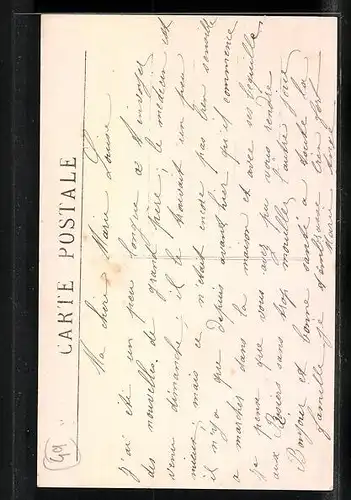 CARTE POSTALE
Ma chère Marie Louise
j'ai été un peu longue a t'envoyer
des nouvelles de grand père, le médecin est
venu dimanche, il le trouvait un peu
mieux, mais ce n'était encore pas bien sensible
il n'y a que depuis avant hier qu'il commence
a marcher dans la maison et avec ses béquilles,
je pense que vous avez pu vous rendre
aux Rosiers sans trop mouiller l'autre jour
Bonjour et bonne santé a toute la
famille je t'embrasse bien fort
Marie
49